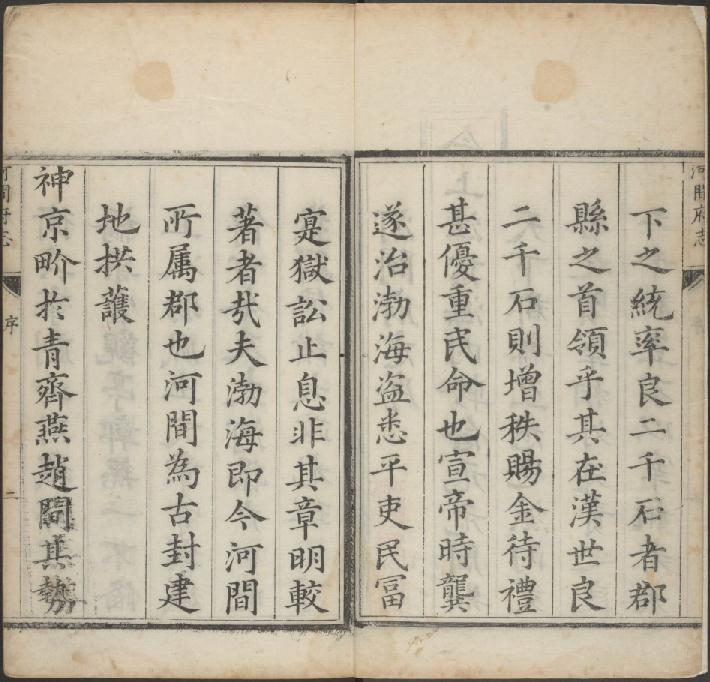 河間府志
下之統率良二千石者郡
縣之首領乎其在漢世良
二千石則增秩賜金待禮
甚優重民命也宣帝時龔
遂治渤海盜悉平吏民富
寔獄訟止息非其章明較
著者㢤夫渤海即今河間
所属郡也河間為古封建
地拱護
神京畍於青齊燕趙間其勢
河間府志
序
二